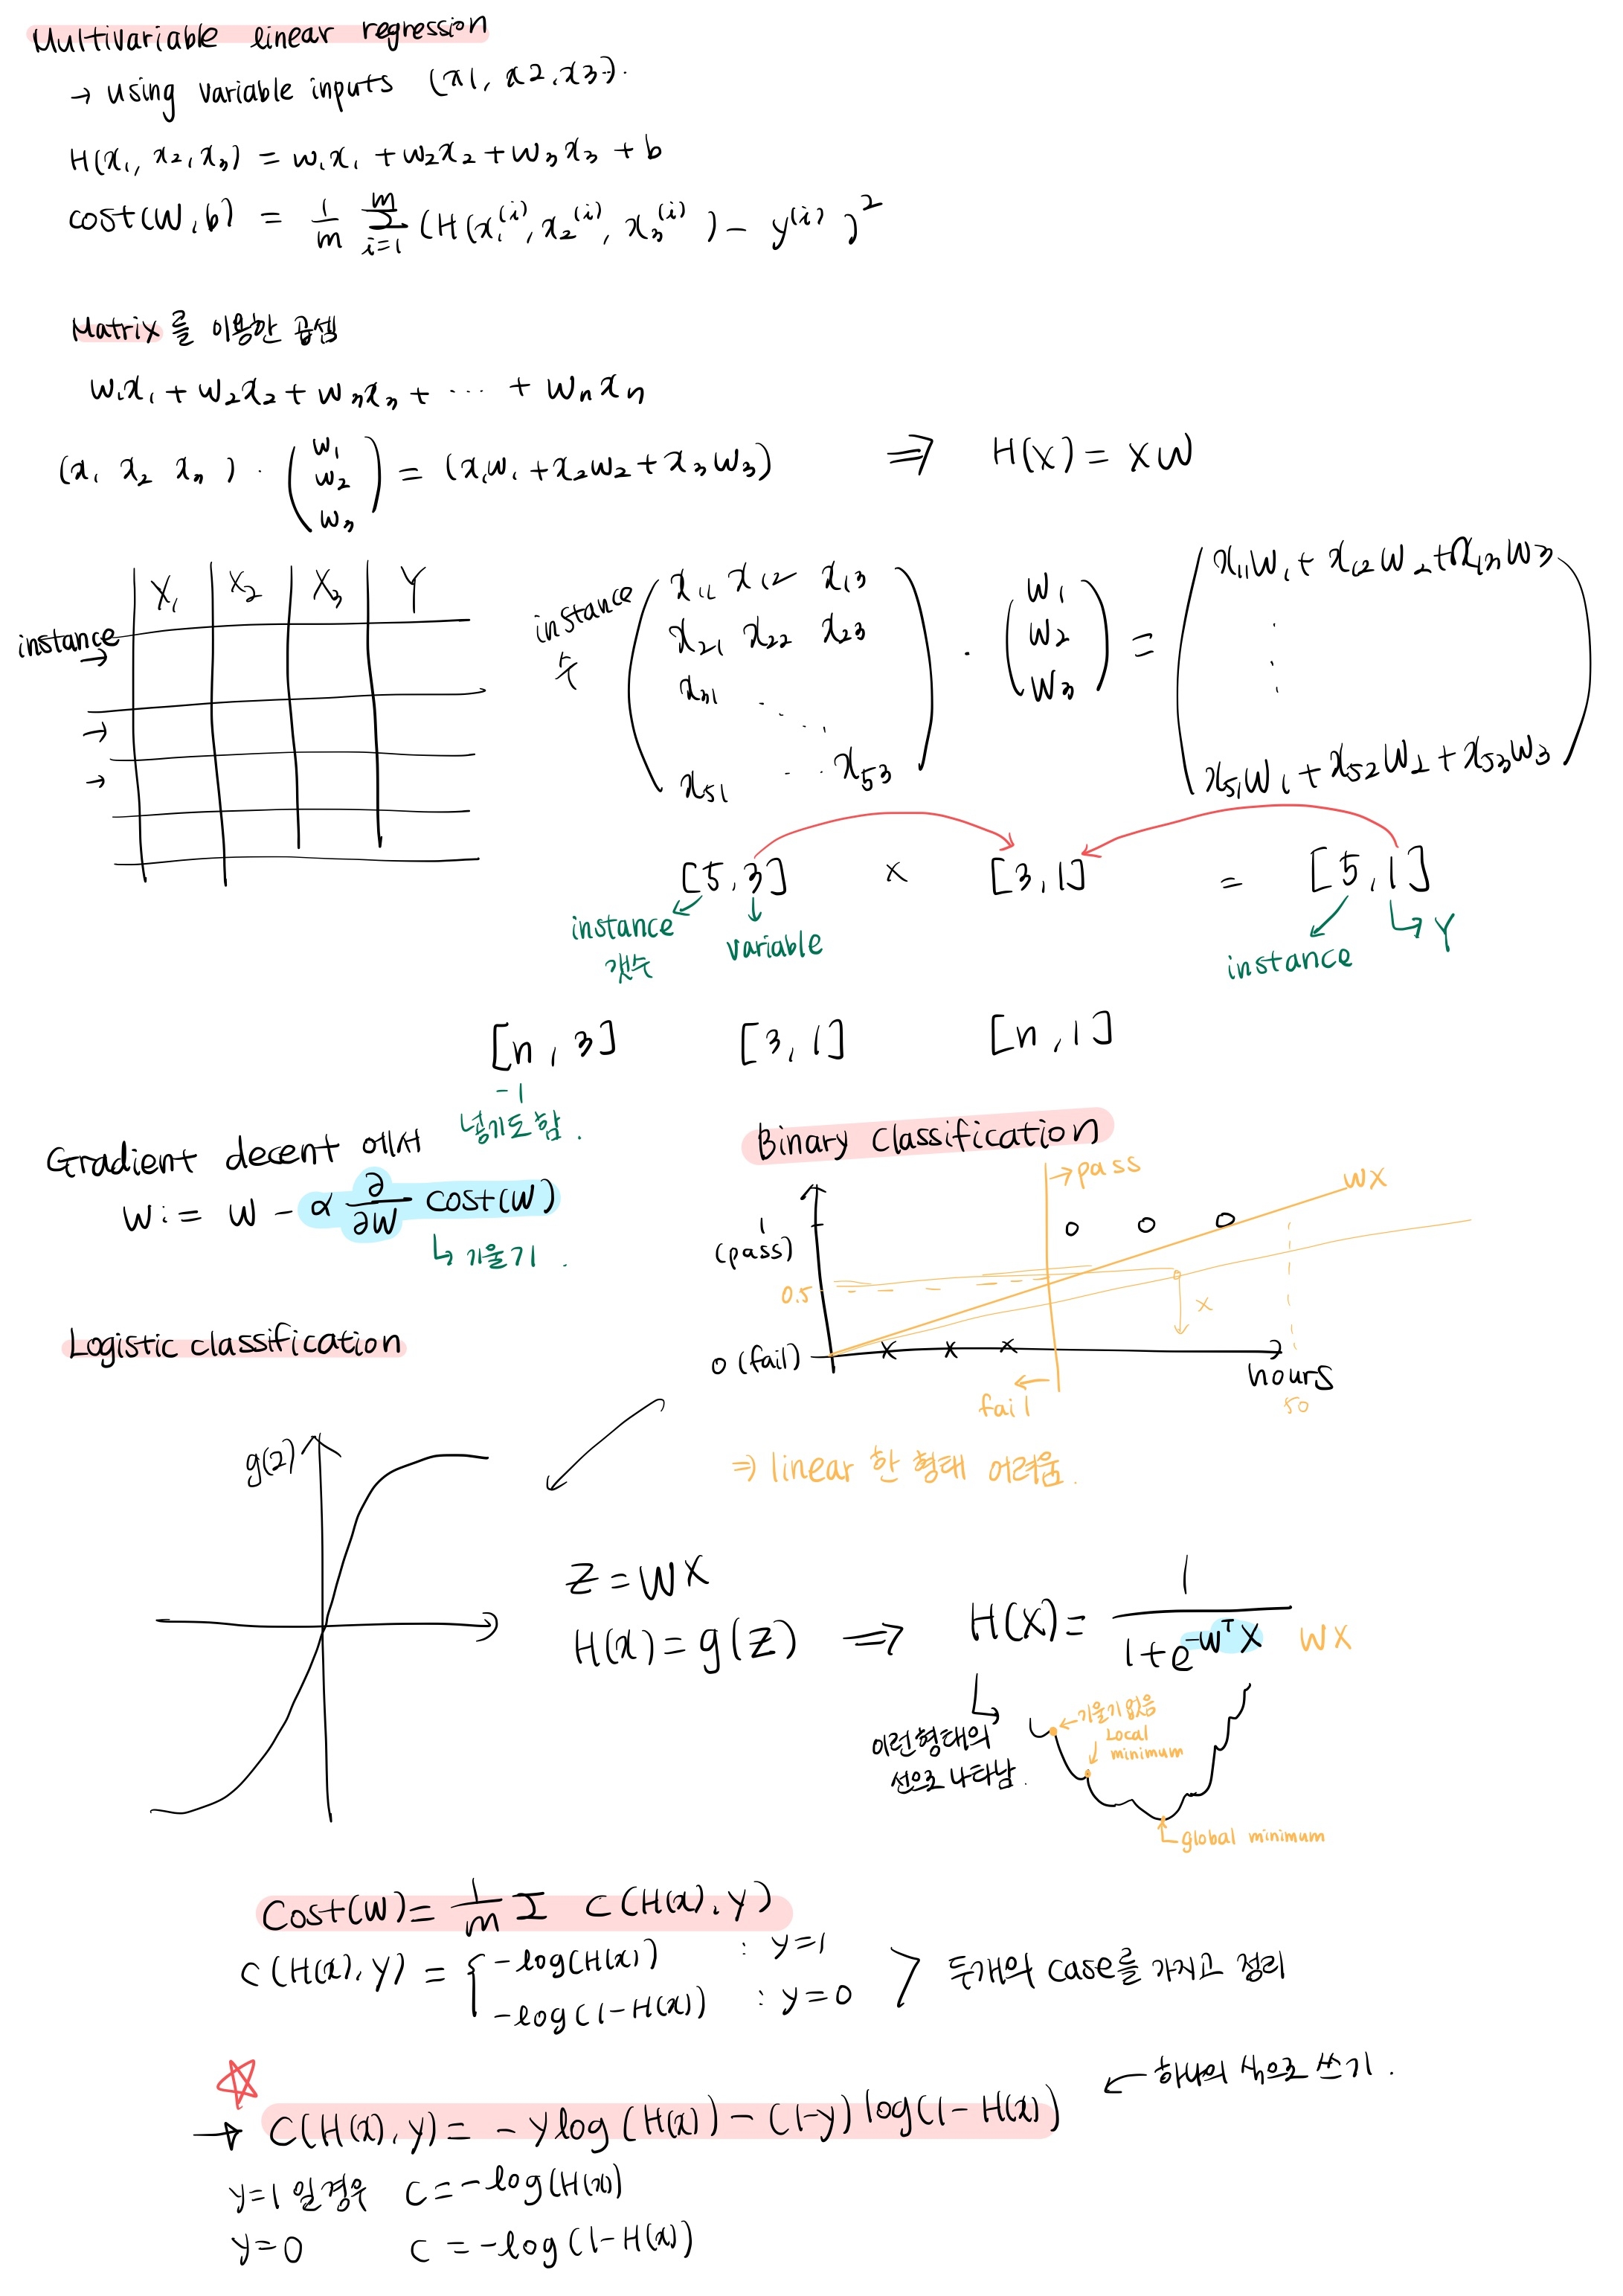 Multivariable linear regression
→ using variable inputs (x1, x2, x3).
H(x₁, x₂, x₃) = w₁x₁ + w₂x₂ + w₃x₃ + b
cost(W, b) = 1/m Σ_{i=1}^{m} (H(x₁⁽ⁱ⁾, x₂⁽ⁱ⁾, x₃⁽ⁱ⁾) - y⁽ⁱ⁾)²
Matrix를 이용한 곱셈
w₁x₁ + w₂x₂ + w₃x₃ + ⋯ + wₙxₙ
(x₁ x₂ x₃) · (w₁ w₂ w₃) = (x₁w₁ + x₂w₂ + x₃w₃) ⇒ H(X) = XW
X₁ X₂ X₃ Y
instance →
→
→
instance 수
x₁₁ x₁₂ x₁₃
x₂₁ x₂₂ x₂₃
x₃₁ ⋯
x₅₁ ⋯ x₅₃
·
w₁
w₂
w₃
=
x₁₁w₁ + x₁₂w₂ + x₁₃w₃
⋮
x₅₁w₁ + x₅₂w₂ + x₅₃w₃
[5, 3] × [3, 1] = [5, 1]
instance 갯수
variable
instance
Y
[n, 3] [3, 1] [n, 1]
-1
넣기도 함.
Gradient decent 에서
W := W - α ∂/∂W cost(W)
↳ 기울기.
Binary Classification
→ pass
WX
1
(pass)
0.5
x
0 (fail)
hours
50
← fail
⇒ linear 한 형태 어려움.
Logistic classification
g(z)
Z = WX
H(x) = g(z) ⇒ H(X) = 1/(1+e^{-WᵀX}) WX
이런 형태의
선으로 나타남.
← 기울기 없음
Local
minimum
global minimum
Cost(W) = 1/m Σ C(H(x), y)
C(H(x), y) = { -log(H(x)) : y=1
-log(1-H(x)) : y=0
> 두개의 case를 가지고 정리
☆
← 하나의 식으로 쓰기.
→ C(H(x), y) = -ylog(H(x)) - (1-y)log(1-H(x))
y=1 일경우 C = -log(H(x))
y=0 C = -log(1-H(x))